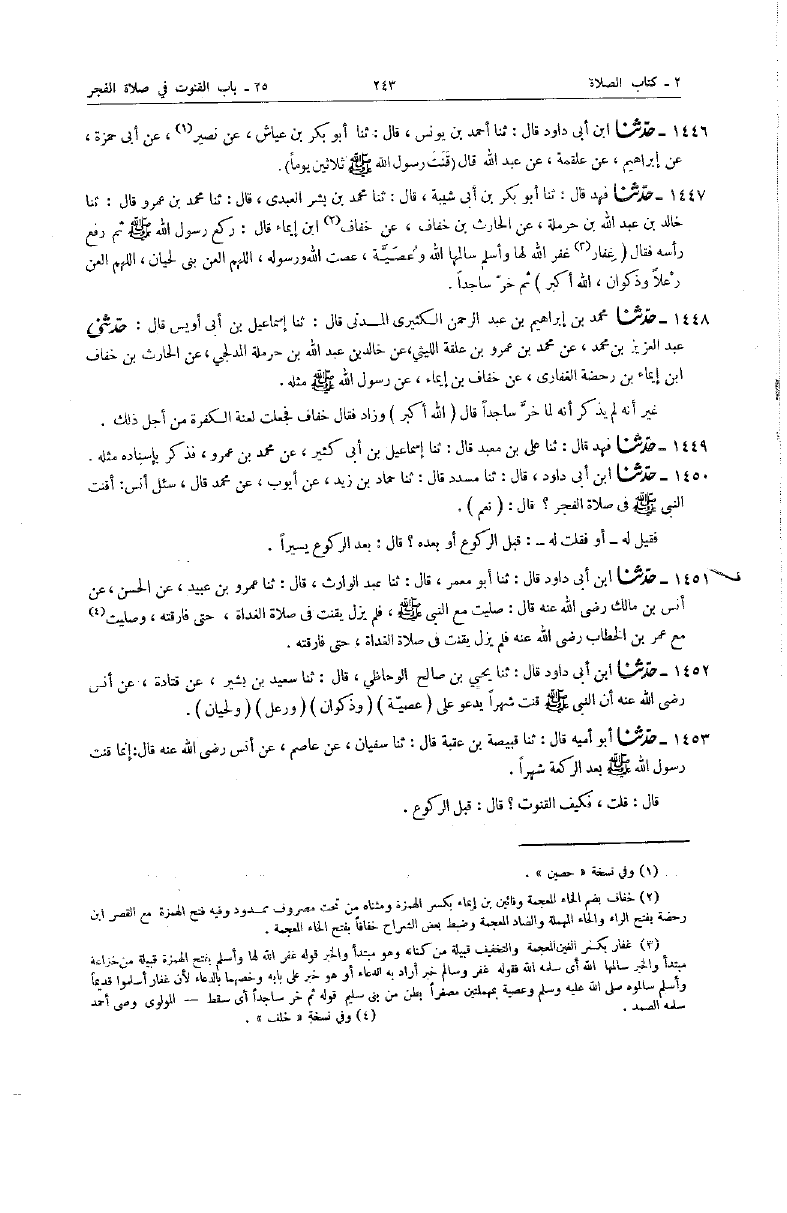 ٢ ـ كتاب الصلاة ٢٤٣ ٢٥ ـ باب القنوت في صلاة الفجر
١٤٤٦ ـ حدثنا ابن أبى داود قال : ثنا أحمد بن يونس ، قال : ثنا أبو بكر بن عياش ، عن نصير(١) ، عن أبى حمزة ،
عن إبراهيم ، عن علقمة ، عن عبد الله قال (قَنَتَ رسول الله ﷺ ثلاثين يوماً).
١٤٤٧ ـ حدثنا فهد قال : ثنا أبو بكر بن أبى شيبة ، قال : ثنا محمد بن بشر العبدى ، قال : ثنا محمد بن عمرو قال : ثنا
خالد بن عبد الله بن حرملة ، عن الحارث بن خفاف ، عن خفاف(٢) ابن إيماء قال : ركع رسول الله ﷺ ثم رفع
رأسه فقال ( غِفار(٣) غفر الله لها وأسلم سالمها الله وعُصَيَّة ، عصت الله ورسوله ، اللهم العن بنى لحيان ، اللهم العن
رِعْلاً وذكوان ، الله أكبر ) ثم خرّ ساجداً .
١٤٤٨ ـ حدثنا محمد بن إبراهيم بن عبد الرحمن الكثيرى المدنى قال : ثنا إسماعيل بن أبى أويس قال : حدثنى
عبد العزيز بن محمد ، عن محمد بن عمرو بن علقة الليثي،عن خالدبن عبد الله بن حرملة المدلجي،عن الحارث بن خفاف
ابن إيماء بن رحضة الغفارى ، عن خفاف بن إيماء ، عن رسول الله ﷺ مثله.
غير أنه لم يذكر أنه لما خرَّ ساجداً قال ( الله أكبر ) وزاد فقال خفاف فجعلت لعنة الكفرة من أجل ذلك .
١٤٤٩ ـ حدثنا فهد قال : ثنا على بن معبد قال : ثنا إسماعيل بن أبى كثير ، عن محمد بن عمرو ، فذكر بإسناده مثله .
١٤٥٠ ـ حدثنا ابن أبى داود ، قال : ثنا مسدد قال : ثنا حماد بن زيد ، عن أيوب ، عن محمد قال ، سئل أنس: أقنت
النبى ﷺ فى صلاة الفجر ؟ قال : ( نعم ) .
فقيل له ـ أو فقلت له ـ : قبل الركوع أو بعده ؟ قال : بعد الركوع يسيراً .
١٤٥١ ـ حدثنا ابن أبى داود قال : ثنا أبو معمر ، قال : ثنا عبد الوارث ، قال : ثنا عمرو بن عبيد ، عن الحسن ، عن
أنس بن مالك رضى الله عنه قال : صليت مع النبى ﷺ ، فلم يزل يقنت فى صلاة الغداة ، حتى فارقته ، وصليت(٤)
مع عمر بن الخطاب رضى الله عنه فلم يزل يقنت فى صلاة الغداة ، حتى فارقته .
١٤٥٢ ـ حدثنا ابن أبى داود قال : ثنا يحيى بن صالح الوحاظي ، قال : ثنا سعيد بن بشير ، عن قتادة ، عن أنس
رضى الله عنه أن النبى ﷺ قنت شهراً يدعو على ( عصيّة ) ( وذكوان ) ( ورعل ) ( ولحيان ) .
١٤٥٣ ـ حدثنا أبو أميه قال : ثنا قبيصة بن عقبة قال : ثنا سفيان ، عن عاصم ، عن أنس رضى الله عنه قال:إنما قنت
رسول الله ﷺ بعد الركعة شهراً .
قال : قلت ، فكيف القنوت ؟ قال : قبل الركوع .
(١) وفي نسخة « حصين » .
(٢) خفاف بضم الخاء المعجمة وفائين بن إيماء بكسر الهمزة ومثناه من تحت مصروف ممدود وفيه فتح الهمزة مع القصر ابن
رحضة بفتح الراء والحاء المهملة والضاد المعجمة وضبط بعض الشراح خفافاً بفتح الخاء المعجمة .
(٣) غفار بكسر الغين المعجمة والتخفيف قبيلة من كنانه وهو مبتدأ والخبر قوله غفر الله لها وأسلم بفتح الهمزة قبيلة من خزاعة
مبتدأ والخبر سالمها الله أى سلمه الله فقوله غفر وسالم خبر أراد به الدعاء أو هو خبر على بابه وخصهما بالدعاء لأن غفار أسلموا قديماً
وأسلم سالموه صلى الله عليه وسلم وعصية بمهملتين مصغراً بطن من بنى سليم قوله ثم خر ساجداً أى سقط — المولوى وصى أحمد
سلمه الصمد .
(٤) وفي نسخة « خلف » .